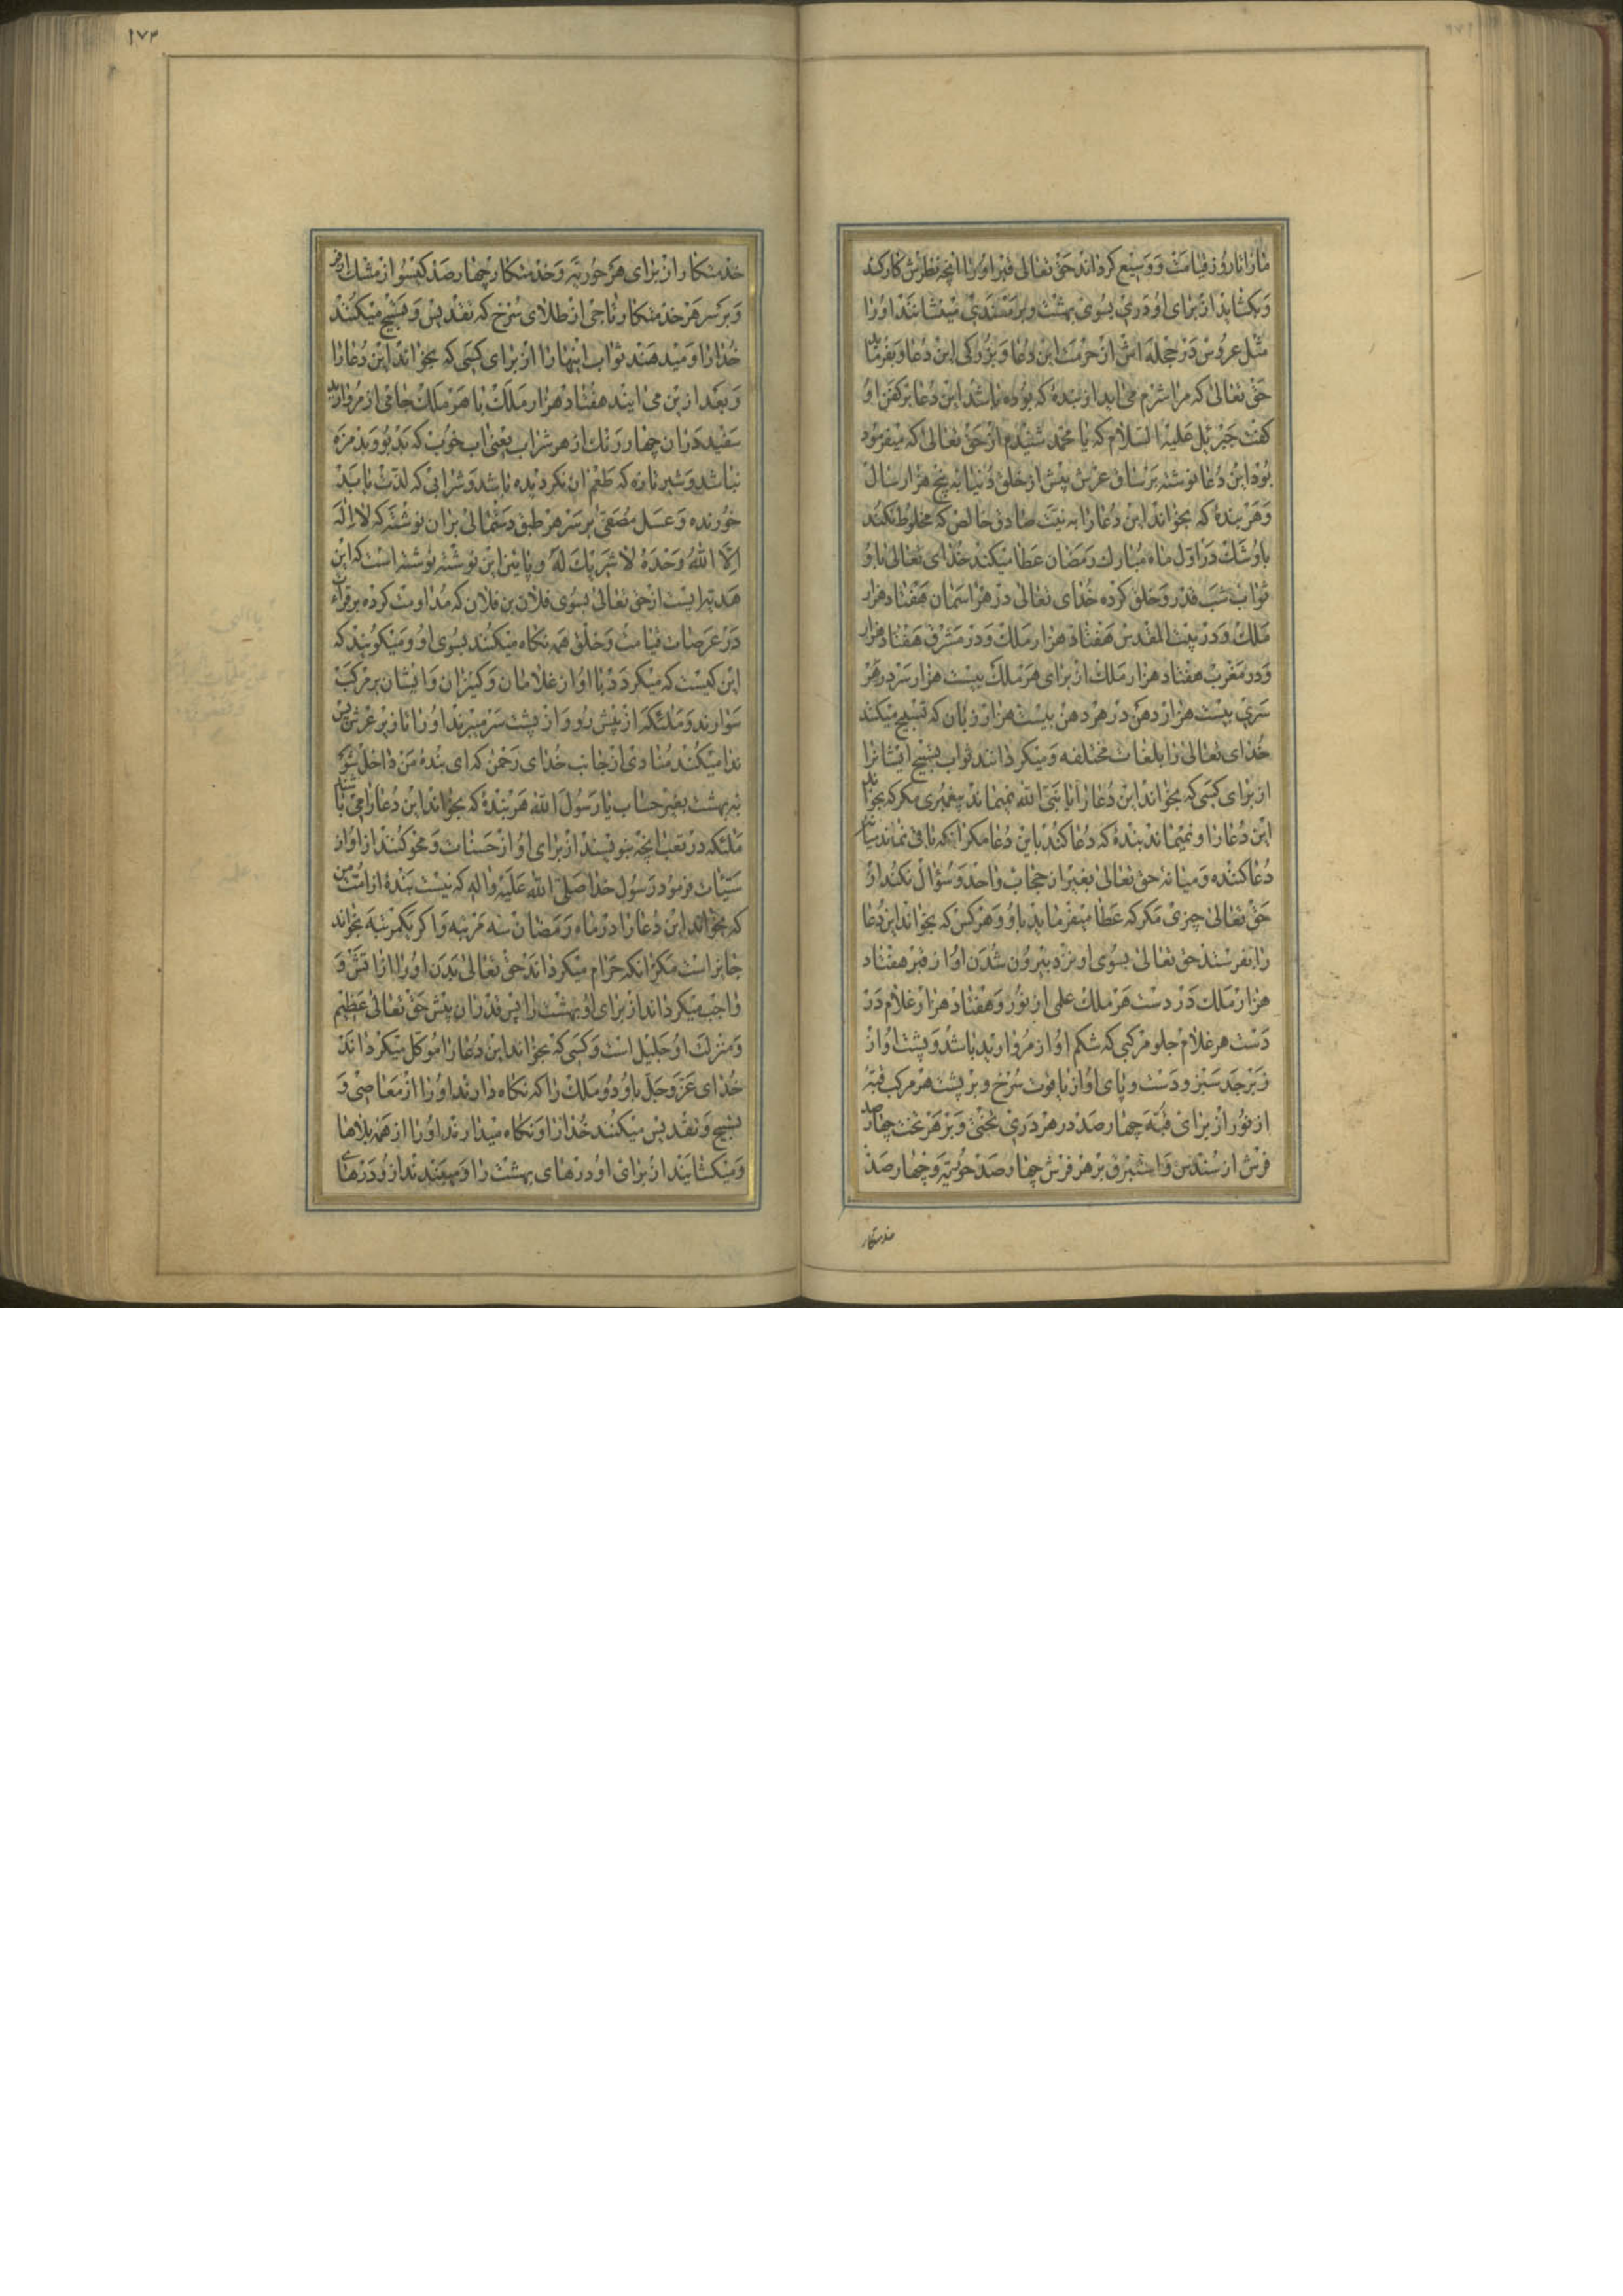 ما را تا روز قیامت و وسیع گرداند حق تعالی قبر او را انچه نظرش کار کند
و بکشاید از برای او دری بسوی بهشت و بر مسندی میشانند او را
مثل عروس در حجله اش از حرمت این دعا و بزرکی این دعا و بفرماید
حق تعالی که مرا شرم می اید از بندۀ که بوده باشد این دعا بر کفن او
کفت جبرئیل علیه السلام که یا محمد شنیدم از حق تعالی که میفرمود
بود این دعا نوشته بر ساق عرش پیش از خلق دنیا به پنج هزار سال
و هر بندۀ که بخواند این دعا را به نیت صادق خالص که مخلوط نکند
باو شک در اول ماه مبارک رمضان عطا میکند خدای تعالی باو
ثواب شب قدر و خلق کرده خدای تعالی در هر اسمان هفتاد هزار
ملک و در بیت المقدس هفتاد هزار ملک و در مشرق هفتاد هزار
و در مغرب هفتاد هزار ملک از برای هر ملک بیست هزار سر در هر
سری بیست هزار دهن در هر دهن بیست هزار زبان که تسبیح میکند
خدای تعالی را بلغات مختلفه و میکردانند ثواب تسبیح ایشانرا
از برای کسی که بخواند این دعا را یا نبی الله نمیماند پیغمبری مکر که بخواند
این دعا را و نمیماند بندۀ که دعا کند باین دعا مکر انکه باقی نماند میان
دعا کننده و میانه حق تعالی بغیر از حجاب واحد و سؤال نکند از
حق تعالی چیزی مکر که عطا میفرماید باو و هر کس که بخواند این دعا
را بفرستند حق تعالی بسوی او نزد بیرون شدن او از قبر هفتاد
هزار ملک در دست هر ملک علمی از نور و هفتاد هزار غلام در
دست هر غلام جلو مرکبی که شکم او از مروارید باشد و پشت او از
زبرجد سبز و دست و پای او از یاقوت سرخ و بر پشت هر مرکب قبۀ
از نور از برای قبّه چهار صد در هر دری تختی و بر هر تخت چهار صد
فرش از سندس و استبرق بر هر فرش چهار صد حوریّه و چهار صد
خدمتکار
۱۷۳
خدمتکاران برای هر حوریّه و خدمتکار چهار صد کیسو از مشک اذفر
و بر سر هر خدمتکار تاجی از طلای سرخ که تقدیس و تسبیح میکنند
خدا را و میدهند ثواب اینها را از برای کسی که بخواند این دعا را
و بعد از ین می ایند هفتاد هزار ملک با هر ملک جامی از مروارید
سفید در ان چهار رنک از هر شراب یعنی اب خوب که بد بو و بد مزه
نباشد و شیر تازه که طعم ان نکردیده باشد و شرابی که لذت یابد
خورنده و عسل مصفی بر سر هر طبق دستمالی بران نوشته که لا اله
الا الله وحده لا شریک له و پایین این نوشته نوشته است که این
هدیه ایست از حق تعالی بسوی فلان بن فلان که مداومت کرده بر قراءت ان
در عرصات قیامت و خلق همه نکاه میکنند بسوی او و میکویند که
این کیست که میکردد با او از غلامان و کنیزان و ایشان بر مرکب
سوارند و ملئکه از پیش رو و از پشت سر میبرند او را تا زیر عرش پس
ندا میکند منادی از جانب خدای رحمن که ای بندۀ من داخل شو
به بهشت بغیر حساب یا رسول الله هر بندۀ که بخواند این دعا را می باشند
ملئکه در تعب انچه بنویسند از برای او از حسنات و محو کنند از او از
سیّئات فرمود رسول خدا صلی الله علیه و اله که نیست بندۀ از امت من
که بخواند این دعا را در ماه رمضان سه مرتبه و اکر یکمرتبه بخواند
جایز است مکر انکه حرام میکرداند حق تعالی بدن او را از اتش و
واجب میکرداند از برای او بهشت را پس قدر ان پیش حق تعالی عظیم
و منزلت او جلیل است و کسی که بخواند این دعا را موکل میکرداند
خدای عز و جل باو دو ملک را که نکاه دارند او را از معاصی و
تسبیح و تقدیس میکنند خدا را و نکاه میدارند او را از همه بلاها
و میکشایند از برای او درهای بهشت را و میبندند از و درهای